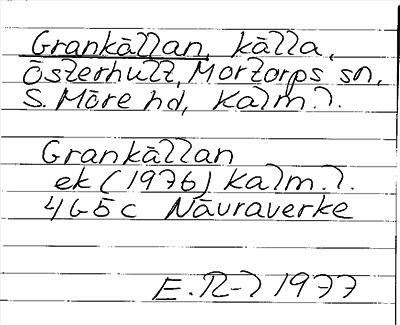 Grankällan, källa,
Österhult, Mortorps sn,
S. Möre hd, Kalm. l.
Grankällan
ek (1976) Kalm. l.
4G5c Nävraverke
E. R-l 1977